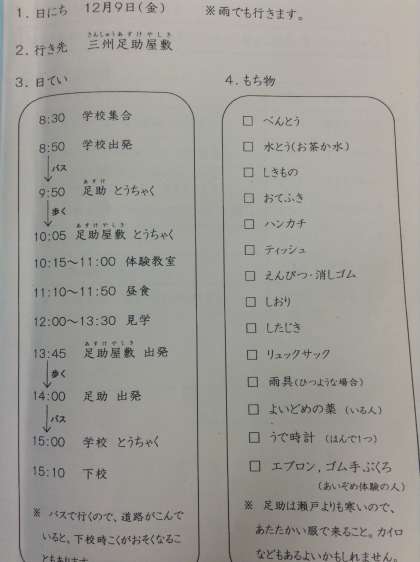 1. 日にち 12月9日(金) ※雨でも行きます。
さんしゅうあすけやしき
2. 行き先 三州足助屋敷
3. 日てい
8:30 学校集合
8:50 学校出発
バス
あすけ
9:50 足助 とうちゃく
歩く
あすけやしき
10:05 足助屋敷 とうちゃく
10:15〜11:00 体験教室
11:10〜11:50 昼食
12:00〜13:30 見学
あすけやしき
13:45 足助屋敷 出発
歩く
14:00 足助 出発
バス
15:00 学校 とうちゃく
15:10 下校
※ バスで行くので、道路がこんで
いると、下校時こくがおそくなるこ
ともあります
4. もち物
□ べんとう
□ 水とう(お茶か水)
□ しきもの
□ おてふき
□ ハンカチ
□ ティッシュ
□ えんぴつ・消しゴム
□ しおり
□ したじき
□ リュックサック
□ 雨具(ひつような場合)
□ よいどめの薬 (いる人)
□ うで時計 (はんで1つ)
□ エプロン, ゴム手ぶくろ
(あいぞめ体験の人)
※ 足助は瀬戸よりも寒いので、
あたたかい服で来ること。カイロ
などもあるよいかもしれません。